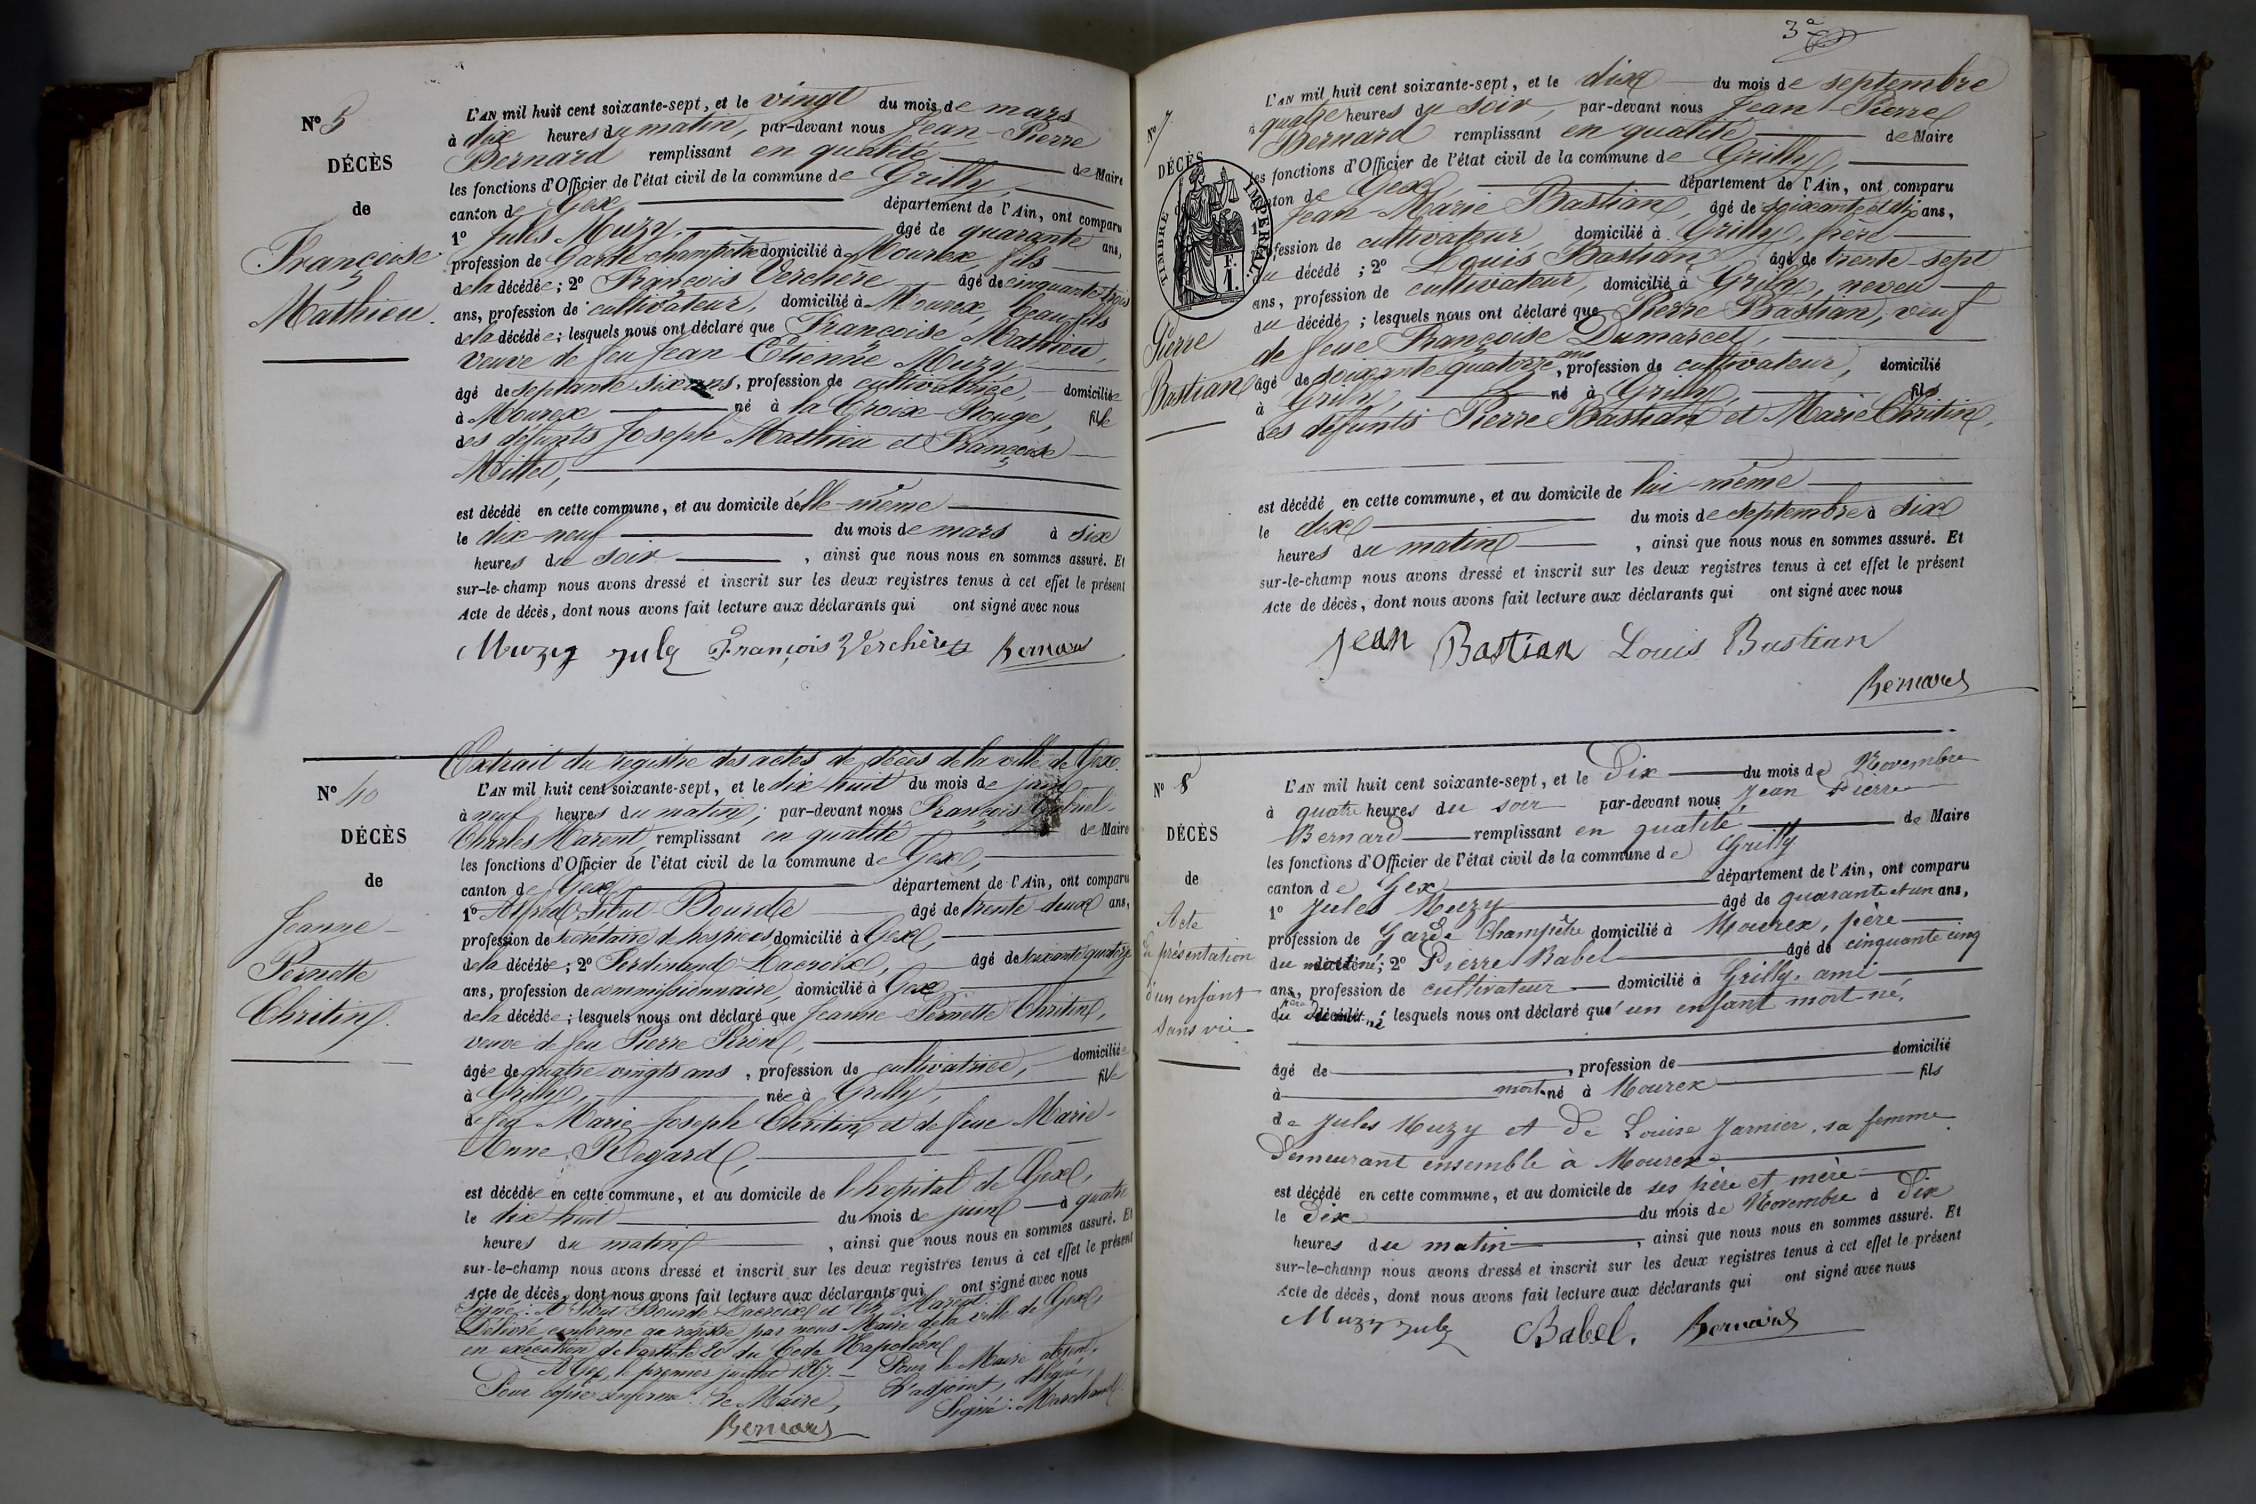 N° 5
DÉCÈS
de
Françoise
Mathieu.
L'AN mil huit cent soixante-sept, et le vingt du mois de mars
à dix heures du matin, par-devant nous Jean-Pierre
Bernard remplissant en qualité de Maire
les fonctions d'Officier de l'état civil de la commune de Grilly,
canton de Gex, département de l'Ain, ont comparu
1° Jules Muzy, âgé de quarante ans,
profession de Garde champêtre domicilié à Mourex, fils
de la décédée; 2° François Verchère âgé de cinquante trois
ans, profession de cultivateur, domicilié à Mourex, beau-fils
de la décédée; lesquels nous ont déclaré que Françoise Mathieu,
veuve de feu Jean Etienne Muzy,
âgé de septante six ans, profession de cultivatrice, domiciliée
à Mourex né à la Croix Rouge, fille
des défunts Joseph Mathieu et Françoise
Mittel,
est décédé en cette commune, et au domicile d'elle-même
le dix-neuf du mois de mars à six
heures du soir, ainsi que nous nous en sommes assuré. Et
sur-le-champ nous avons dressé et inscrit sur les deux registres tenus à cet effet le présent
Acte de décès, dont nous avons fait lecture aux déclarants qui ont signé avec nous
Muzy july François Verchère Bernard
Extrait du registre des actes de décès de la ville de Gex.
N° 40
DÉCÈS
de
Jeanne-
Pernette
Chritin.
L'AN mil huit cent soixante-sept, et le dix huit du mois de juin
à neuf heures du matin; par-devant nous François
Charles Marent, remplissant en qualité de Maire
les fonctions d'Officier de l'état civil de la commune de Gex,
canton de Gex, département de l'Ain, ont comparu
1° Alfred Bourde âgé de trente deux ans,
profession de Secrétaire de hospices domicilié à Gex,
de la décédée; 2° Ferdinand Lacroix, âgé de soixante quatorze
ans, profession de commissionnaire, domicilié à Gex
de la décédée; lesquels nous ont déclaré que Jeanne-Pernette Chritin,
veuve de feu Pierre Piron,
âgée de quatre vingts ans, profession de cultivatrice, domiciliée
à Grilly, née à Grilly, fille
de feu Marie-Joseph Chritin et de feue Marie-
Anne Regard,
est décédée en cette commune, et au domicile de l'hopital de Gex,
le dix huit du mois de juin à quatre
heures du matin, ainsi que nous nous en sommes assuré. Et
sur-le-champ nous avons dressé et inscrit sur les deux registres tenus à cet effet le présent
Acte de décès, dont nous avons fait lecture aux déclarants qui ont signé avec nous
Signé: A Bourde Lacroix et Ch. Marent.
Délivré conforme au registre par nous Maire de la ville de Gex,
en exécution de l'article 80 du Code Napoléon
A Gex, le premier juillet 1867. Pour le Maire absent,
L'adjoint, délégué,
Pour copie conforme: Le Maire, Signé: Marchand
Bernard
3e
N° 7
DÉCÈS
TIMBRE IMPÉRIAL
F.
1.
Pierre
Bastian
L'AN mil huit cent soixante-sept, et le dix du mois de septembre
à quatre heures du soir, par-devant nous Jean-Pierre
Bernard remplissant en qualité de Maire
les fonctions d'Officier de l'état civil de la commune de Grilly,
canton de Gex, département de l'Ain, ont comparu
1° Jean-Marie Bastian, âgé de soixante et dix ans,
profession de cultivateur, domicilié à Grilly, frère
du décédé; 2° Louis Bastian âgé de trente-sept
ans, profession de cultivateur, domicilié à Grilly, neveu
du décédé; lesquels nous ont déclaré que Pierre Bastian, veuf
de feue Françoise Dumarcet,
âgé de soixante quatorze ans, profession de cultivateur, domicilié
à Grilly, né à Grilly, fils
des défunts Pierre Bastian et Marie Chritin,
est décédé en cette commune, et au domicile de lui-même
le dix du mois de septembre à six
heures du matin, ainsi que nous nous en sommes assuré. Et
sur-le-champ nous avons dressé et inscrit sur les deux registres tenus à cet effet le présent
Acte de décès, dont nous avons fait lecture aux déclarants qui ont signé avec nous
Jean Bastian Louis Bastian
Bernard
N° 8
DÉCÈS
de
Acte
de présentation
d'un enfant
sans vie
L'AN mil huit cent soixante-sept, et le Dix du mois de Novembre
à quatre heures du soir par-devant nous Jean Pierre
Bernard remplissant en qualité de Maire
les fonctions d'Officier de l'état civil de la commune de Grilly
canton de Gex département de l'Ain, ont comparu
1° Jules Muzy âgé de quarante et un ans,
profession de Garde Champêtre domicilié à Mourex, père
du mort né; 2° Pierre Babel âgé de cinquante cinq
ans, profession de cultivateur domicilié à Grilly, ami
du père; lesquels nous ont déclaré qu'un enfant mort-né,
âgé de, profession de domicilié
à mort-né à Mourex fils
de Jules Muzy et de Louise Jarnier, sa femme
Demeurant ensemble à Mourex
est décédé en cette commune, et au domicile de ses père et mère
le Dix du mois de Novembre à Dix
heures du matin, ainsi que nous nous en sommes assuré. Et
sur-le-champ nous avons dressé et inscrit sur les deux registres tenus à cet effet le présent
Acte de décès, dont nous avons fait lecture aux déclarants qui ont signé avec nous
Muzy july Babel. Bernard